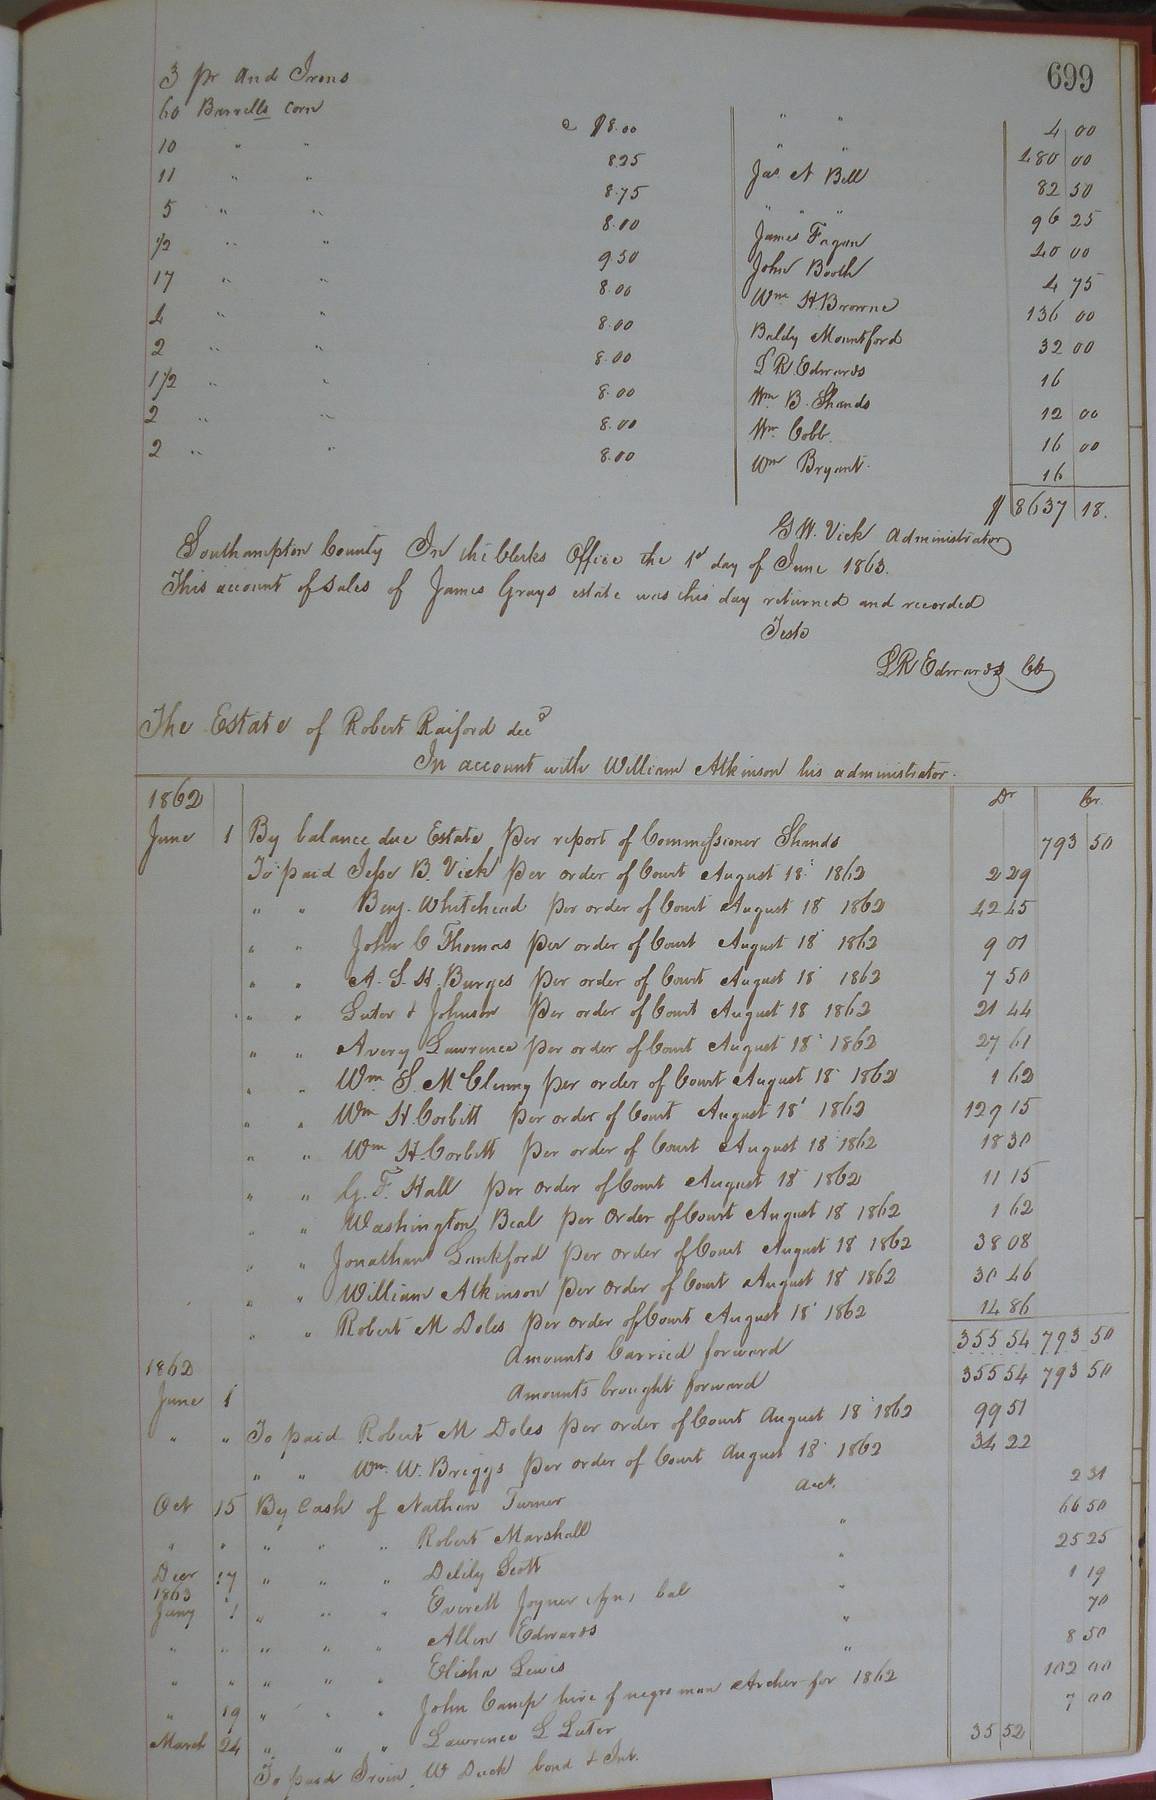 699
3 pr And Irons " " 4 00
60 Barrells corn @ $8.00 " " 480 00
10 " " 825 Jas A Bell 82 50
11 " " 8.75 " " " 96 25
5 " " 8.00 James Fagan 40 00
1/2 " " 9 50 John Booth 4 75
17 " " 8.00 Wm H. Browne 136 00
4 " " 8.00 Baldy Mountford 32 00
2 " " 8.00 L R Edwards 16
1 1/2 " " 8.00 Wm B. Shands 12 00
2 " " 8.00 Wm Cobb. 16 00
2 " " 8.00 Wm Bryant. 16
$ 8637 18.
G W. Vick Administrator
Southampton County In the Clerks Office the 1st day of June 1863.
This account of Sales of James Grays estate was this day returned and recorded
Teste
L R Edwards Ck
The Estate of Robert Raiford decd
In account with William Atkinson his administrator.
1862 Dr Cr.
June 1 By balance due Estate per report of Commissioner Shands 793 50
To paid Jesse B. Vick per order of Court August 18 1862 2 29
" " Benj. Whitehead per order of Court August 18 1862 42 45
" " John C Thomas per order of Court August 18 1862 9 01
" " A. S. H. Burges per order of Court August 18 1862 7 50
" " Luter & Johnson per order of Court August 18 1862 21 44
" " Avery Lawrence per order of Court August 18 1862 27 61
" " Wm S. McClenny per order of Court August 18 1862 1 62
" " Wm H. Corbitt per order of Court August 18 1862 129 15
" " Wm H. Corbitt per order of Court August 18 1862 18 30
" " G. F. Hall per order of Court August 18 1862 11 15
" " Washington Beal per order of Court August 18 1862 1 62
" " Jonathan Lankford per order of Court August 18 1862 38 08
" " William Atkinson per order of Court August 18 1862 30 46
" " Robert M Doles per order of Court August 18 1862 14 86
Amounts Carried forward 355 54 793 50
1862
June 1 Amounts brought forward 355 54 793 50
" " To paid Robert M Doles per order of Court August 18 1862 99 51
" " Wm. W. Briggs per order of Court August 18 1862 34 22
Oct 15 By Cash of Nathan Turner acct. 2 31
" " " " " Robert Marshall " 66 50
Decr 17 " " " Delily Scott " 25 25
1863
Jany 1 " " " Everett Joyner bal " 1 19
" " " " " Allen Edwards " 70
" " " " " Elisha Lewis " 8 50
" 19 " " " John Camp hire of negro man Archer for 1862 102 00
March 24 " " " Lawrence L Luter 7 00
To paid Irvin W Duck bond & Int. 35 52